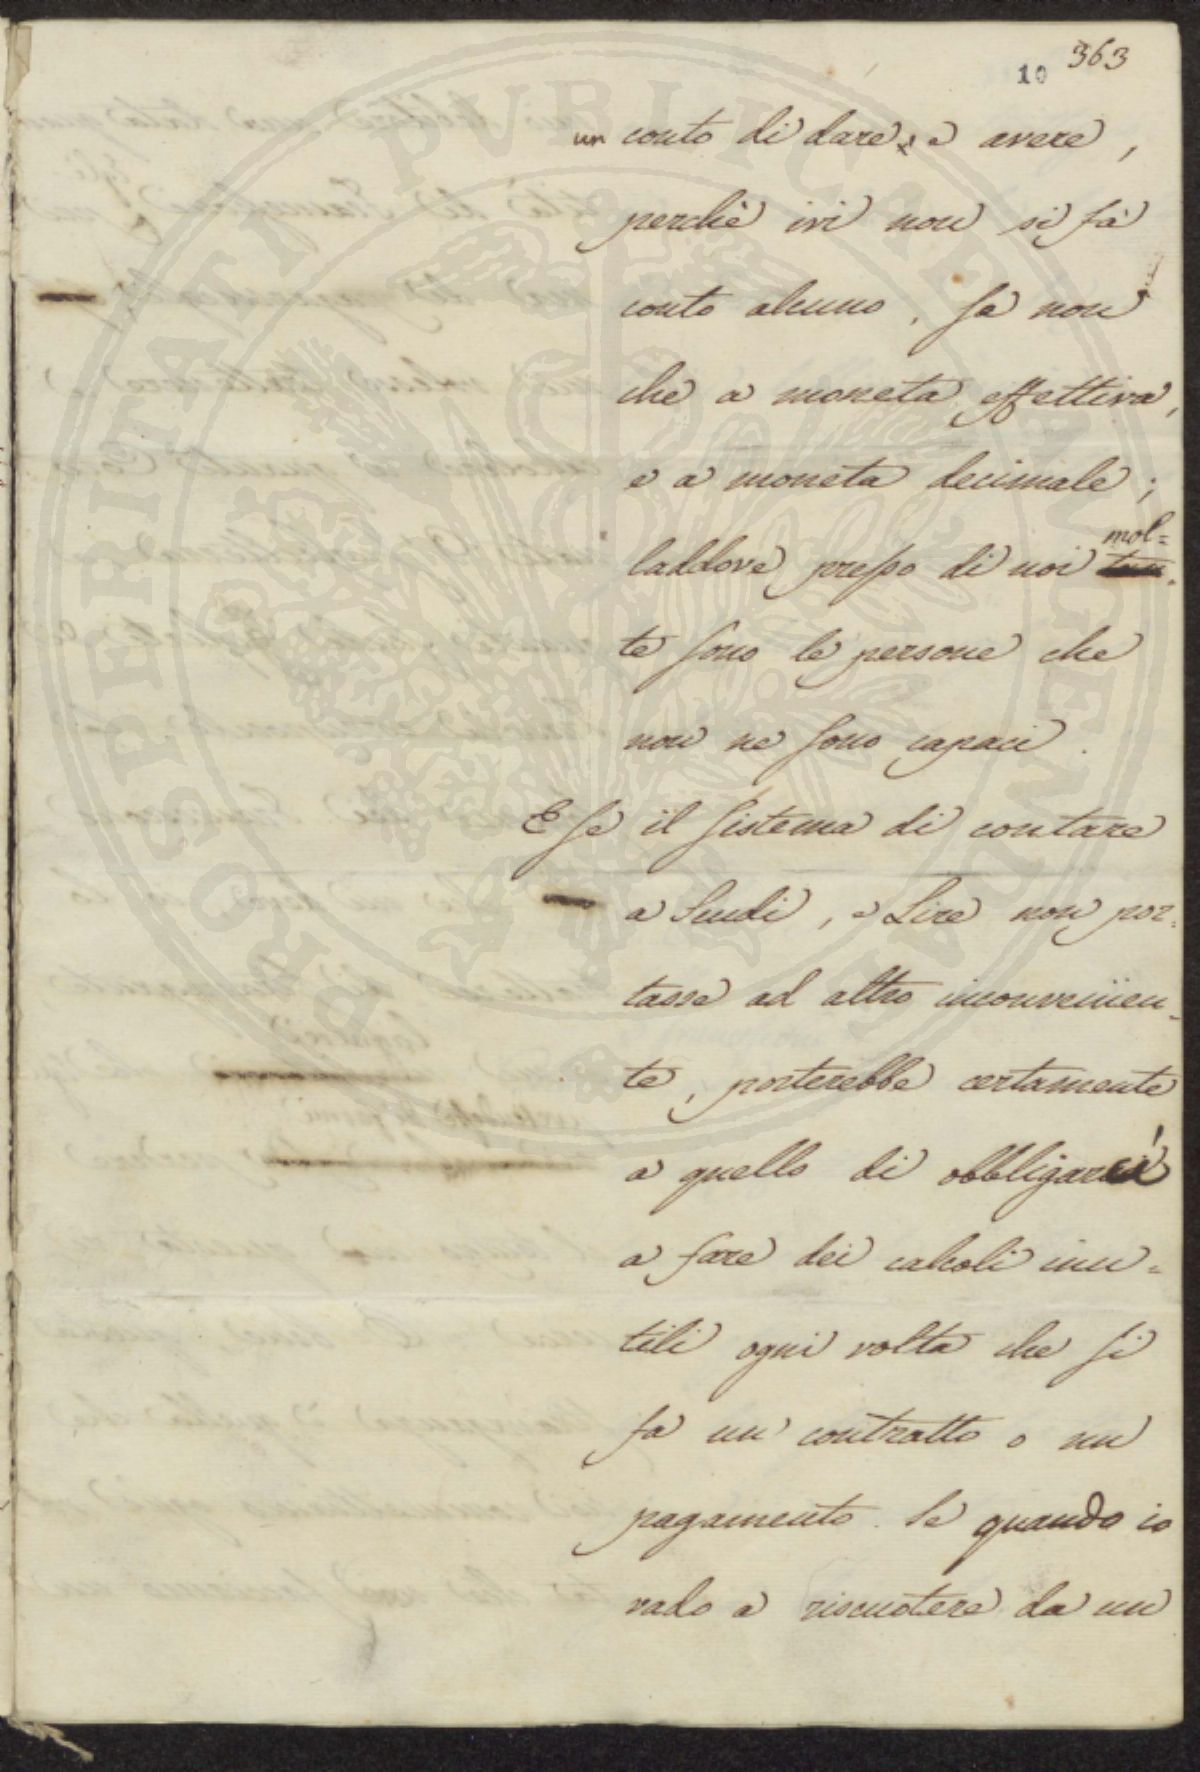 363
10
un conto di dare, e avere,
perchè ivi non si fà
conto alcuno, se non
che a moneta effettiva,
e a moneta decimale;
mol=
laddove presso di noi
te sono le persone che
non ne sono capaci.
E se il sistema di contare
a Scudi, e Lire non por=
tasse ad altro inconvenien=
te, porterebbe certamente
a quello di obbligarci
a fare dei calcoli inu=
tili ogni volta che si
fa un contratto o un
pagamento. Se quando io
vado a riscuotere da un
PROSPERITATI PUBLICAE AUGENDAE